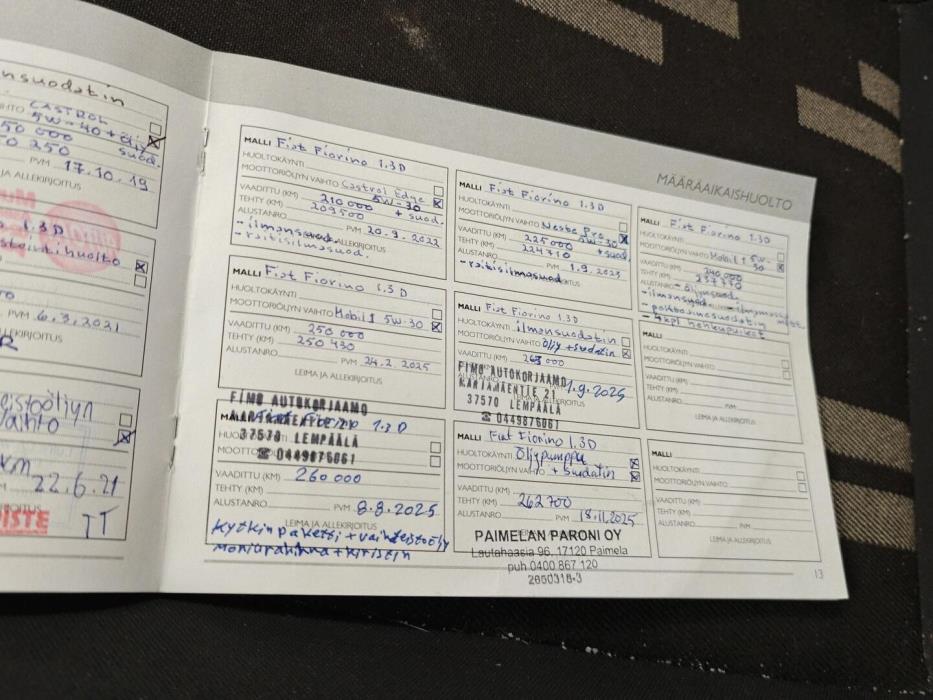 nsuodatin
CASTROL
5W-40 + öljy
suod.
50 000
0 250
PVM 17.10.19
JA ALLEKIRJOITUS
1.3 D
PVM 6.3.2021
vaihto
km
22.6.21
TT
MÄÄRÄAIKAISHUOLTO
MALLI Fiat Fiorino 1.3 D
HUOLTOKÄYNTI
MOOTTORIÖLJYN VAIHTO Castrol Edge
5W-30
VAADITTU (KM) 210 000 + suod.
TEHTY (KM) 209500
ALUSTANRO PVM 20.9.2022
LEIMA JA ALLEKIRJOITUS
- ilmansuod.
- raitisilmasuod.
MALLI Fiat Fiorino 1.3 D
HUOLTOKÄYNTI
MOOTTORIÖLJYN VAIHTO Mobil 1 5W-30
VAADITTU (KM) 250 000
TEHTY (KM) 250 430
ALUSTANRO PVM 24.2.2025
LEIMA JA ALLEKIRJOITUS
FIMO AUTOKORJAAMO
37570 LEMPÄÄLÄ
☎ 0449876061
MALLI Fiat Fiorino 1.3 D
VAADITTU (KM) 260 000
TEHTY (KM)
ALUSTANRO PVM 8.8.2025
LEIMA JA ALLEKIRJOITUS
Kytkinpaketti + vaihteistoöljy
Moniurahihna + kiristin
MALLI Fiat Fiorino 1.3 D
HUOLTOKÄYNTI
MOOTTORIÖLJYN VAIHTO Neste Pro
5W-30
VAADITTU (KM) 225 000 + suod
TEHTY (KM) 224710
ALUSTANRO PVM 1.9.2023
- raitisilmasuod
MALLI Fiat Fiorino 1.3D
HUOLTOKÄYNTI ilmansuodatin
MOOTTORIÖLJYN VAIHTO Öljy + sudatin
VAADITTU (KM)
FIMO AUTOKORJAAMO
KARJAMÄENTIE 21
37570 LEMPÄÄLÄ
☎ 0449876061
1.9.2025
MALLI Fiat Fiorino 1.3D
HUOLTOKÄYNTI Öljypumppu
MOOTTORIÖLJYN VAIHTO + Suodatin
VAADITTU (KM)
TEHTY (KM) 262 700
ALUSTANRO PVM 18.11.2025
LEIMA JA ALLEKIRJOITUS
PAIMELAN PARONI OY
Lautahaasia 96, 17120 Paimela
puh 0400 867 120
2860318-3
MALLI Fiat Fiorino 1.3D
HUOLTOKÄYNTI
MOOTTORIÖLJYN VAIHTO Mobil 1 5W-
30
VAADITTU (KM) 240 000
TEHTY (KM) 237 770
ALUSTANRO - öljynsuod.
- ilmansuod.
- polttoainesuodatin
- 4kpl hehkutulpat
MALLI
HUOLTOKÄYNTI
MOOTTORIÖLJYN VAIHTO
VAADITTU (KM)
TEHTY (KM)
ALUSTANRO PVM
LEIMA JA ALLEKIRJOITUS
MALLI
HUOLTOKÄYNTI
MOOTTORIÖLJYN VAIHTO
VAADITTU (KM)
TEHTY (KM)
ALUSTANRO PVM
LEIMA JA ALLEKIRJOITUS
13